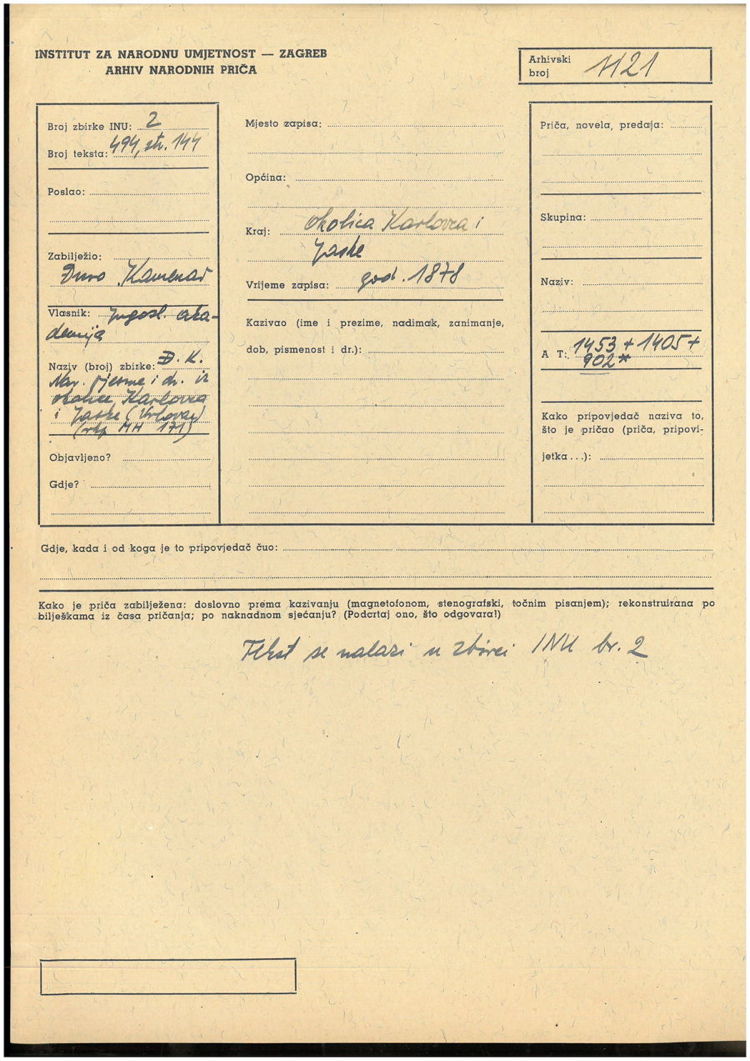 INSTITUT ZA NARODNU UMJETNOST — ZAGREB
ARHIV NARODNIH PRIČA
Arhivski broj 1121
Broj zbirke INU: 2
Broj teksta: 494, str. 144
Poslao:
Zabilježio:
Đuro Kamenar
Vlasnik: Jugosl. aka-
demija
Naziv (broj) zbirke: Đ. K.
Nar. pjesme i dr. iz
okolice Karlovca
i Jaske
(rkp MH 171)
Objavljeno?
Gdje?
Mjesto zapisa:
Općina:
Kraj: okolica Karlovca i
Jaske
Vrijeme zapisa: god. 1878
Kazivao (ime i prezime, nadimak, zanimanje,
dob, pismenost i dr.):
Priča, novela, predaja:
Skupina:
Naziv:
A T: 1453 + 1405 +
902*
Kako pripovjedač naziva to,
što je pričao (priča, pripovi-
jetka...):
Gdje, kada i od koga je to pripovjedač čuo:
Kako je priča zabilježena: doslovno prema kazivanju (magnetofonom, stenografski, točnim pisanjem); rekonstruirana po
bilješkama iz časa pričanja; po naknadnom sjećanju? (Podcrtaj ono, što odgovara!)
Tekst se nalazi u zbirci INU br. 2